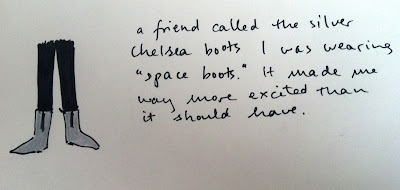 a friend called the silver
Chelsea boots I was wearing
"space boots." It made me
way more excited than
it should have.